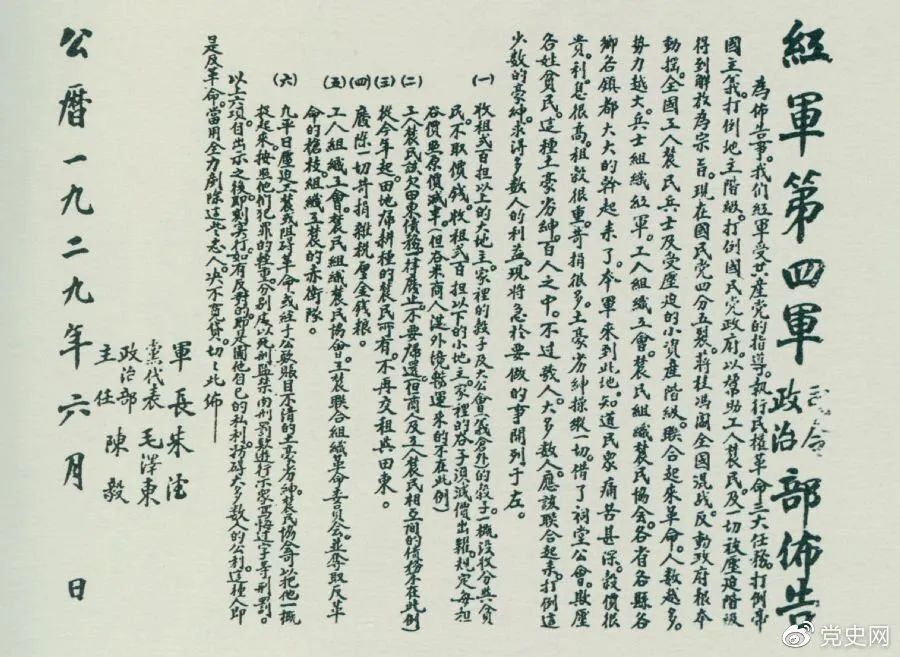 紅軍第四軍司令部佈告
政治
為佈告事。我們紅軍受共產黨的指導。執行民權革命三大任務。打倒帝
國主義。打倒地主階級。打倒國民黨政府。以幫助工人農民及一切被壓迫階級
得到解放為宗旨。現在國民黨四分五裂。蔣桂馮閻全國混战。反動政府根本
動搖。全國工人農民兵士及受壓迫的小資產階級。聯合起來革命。人数越多。
势力越大。兵士組織紅軍。工人組織工會。農民組織農民協会。各省各縣各
鄉各鎮都大大的幹起來了。本軍來到此地。知道民眾痛苦甚深。穀價很
貴。利息很高。租穀很重。苛捐很多。土豪劣紳操縱一切。借了祠堂公會。欺壓
各姓貧民。這種土豪劣紳。百人之中。不过数人。大多数人。應該聯合起來。打倒這
少数的豪紳。求得多数人的利益。現將急於要做的事開列于左。
(一)收租弍百担以上的大地主。家裡的穀子及大公會(義倉外)的穀子。一概沒收分與貧
民。不取價錢。收租弍百担以下的小地主。家裡的谷子須減價出糶。規定每担
谷價照原價減半。(但谷米商人從外境販運来的不在此例)
(二)工人農民該欠田東債務。一律廢止。不要歸還。(但商人及工人農民相互間的債務不在此例)
(三)從今年起。田地歸耕種的農民所有。不再交租與田東。
(四)廢除一切苛捐雜税厘金錢粮。
(五)工人組織工會。農民組織農民協會。工農聯合組織革命委員会。並奪取反革
命的槍枝。組織工農的赤衛隊。
(六)凡平日壓迫工農或阻碍革命。或経手公欵賬目不清的土豪劣紳。農民協會可以把他一概
捉起來。按照他们犯罪的輕重。分别處以死刑監禁肉刑罰款遊行示家寫悔过字等刑罰。
以上六項自出示之後。即刻实行。如有反對的。即是圖他自己的私利。妨碍大多数人的公利。這種人即
是反革命。當用全力剷除這些惡人。决不寬貸。切切此佈
軍長朱德
黨代表毛澤東
政治部
主任陳毅
公曆一九二九年六月 日
党史网